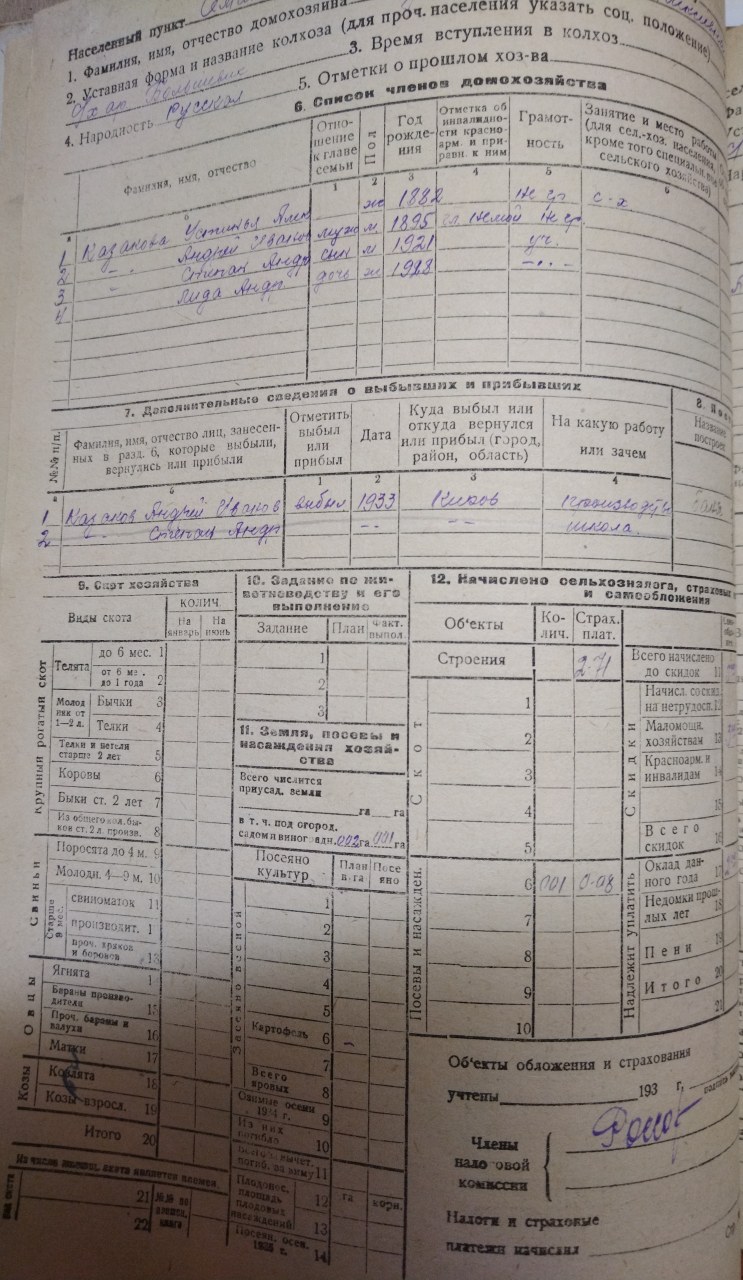 Населенный пункт
1. Фамилия, имя, отчество домохозяина
2. Уставная форма и название колхоза (для проч. населения указать соц. положение)
3. Время вступления в колхоз
4. Народность русская 5. Отметки о прошлом хоз-ва
6. Список членов домохозяйства
Фамилия, имя, отчество
Отношение к главе семьи
Пол
Год рождения
Отметка об инвалидности красноарм. и приравн. к ним
Грамотность
Занятие и место работы
(для сел.-хоз. населения,
кроме того специальн.
сельского хозяйства)
1 2 3 4 5 6
1 Казакова Устинья Алек ж 1882 не гр с-х
2 -"- Андрей Иванов муж м 1895 гл. немой не гр.
3 -"- Степан Андр сын м 1921 уч.
4 Лида Андр дочь ж 1928 -"-
7. Дополнительные сведения о выбывших и прибывших
№№ п/п.
Фамилия, имя, отчество лиц, занесенных в разд. 6, которые выбыли, вернулись или прибыли
Отметить выбыл или прибыл
Дата
Куда выбыл или откуда вернулся или прибыл (город, район, область)
На какую работу или зачем
1 2 3 4
1 Казаков Андрей Иванов выбыл 1933 Киров
2 -"- Степан Андр -"- -"- школа
9. Скот хозяйства
Виды скота
КОЛИЧ.
На январь
На июнь
Крупный рогатый скот
Телята
до 6 мес. 1
от 6 мес. до 1 года 2
Молодняк от 1—2 л.
Бычки 3
Телки 4
Телки и нетели старше 2 лет 5
Коровы 6
Быки ст. 2 лет 7
Из общего кол. быков ст. 2 л. произв. 8
Свиньи
Поросята до 4 м. 9
Молодн. 4—9 м. 10
Старше 9 мес.
свиноматок 11
производит. 1
проч. хряков и боровов 13
Овцы
Ягнята 1
Бараны производители 15
Проч. бараны и валухи 16
Матки 17
Козы
Козлята 18
Козы взросл. 19
Итого 20
21
22
10. Задание по животноводству и его выполнение
Задание План Факт. выпол.
1
2
3
11. Земля, посевы и насаждения хозяйства
Всего числится
приусад. земли
га га
в т. ч. под огород.
садом и виноградн. 002 га 001 га
Посеяно культур
План в га
Посеяно
1
2
3
4
5
Картофель 6
7
Всего яровых 8
Озимые осени 1934 г. 9
Из них погибло 10
11
Плодонос. площадь плодовых насаждений 12 га корн.
13
Посеян. осен. 1935 г. 14
12. Начислено сельхозналога, страховых
и самообложения
Об'екты
Колич.
Страх. плат.
Строения 2-71
Скот
1
2
3
4
5
Посевы и насажден.
6 001 0-08
7
8
9
10
Всего начислено до скидок 11
Скидки
Начисл. со скид. на нетрудосп. 12
Маломощн. хозяйствам 13
Красноарм. и инвалидам 14
15
Всего скидок 16
Надлежит уплатить
Оклад данного года 17
Недоимки прошлых лет 18
Пени 19
Итого 20
21
Об'екты обложения и страхования
учтены 193 г.
Члены
налоговой
комиссии
Налоги и страховые
платежи начислил